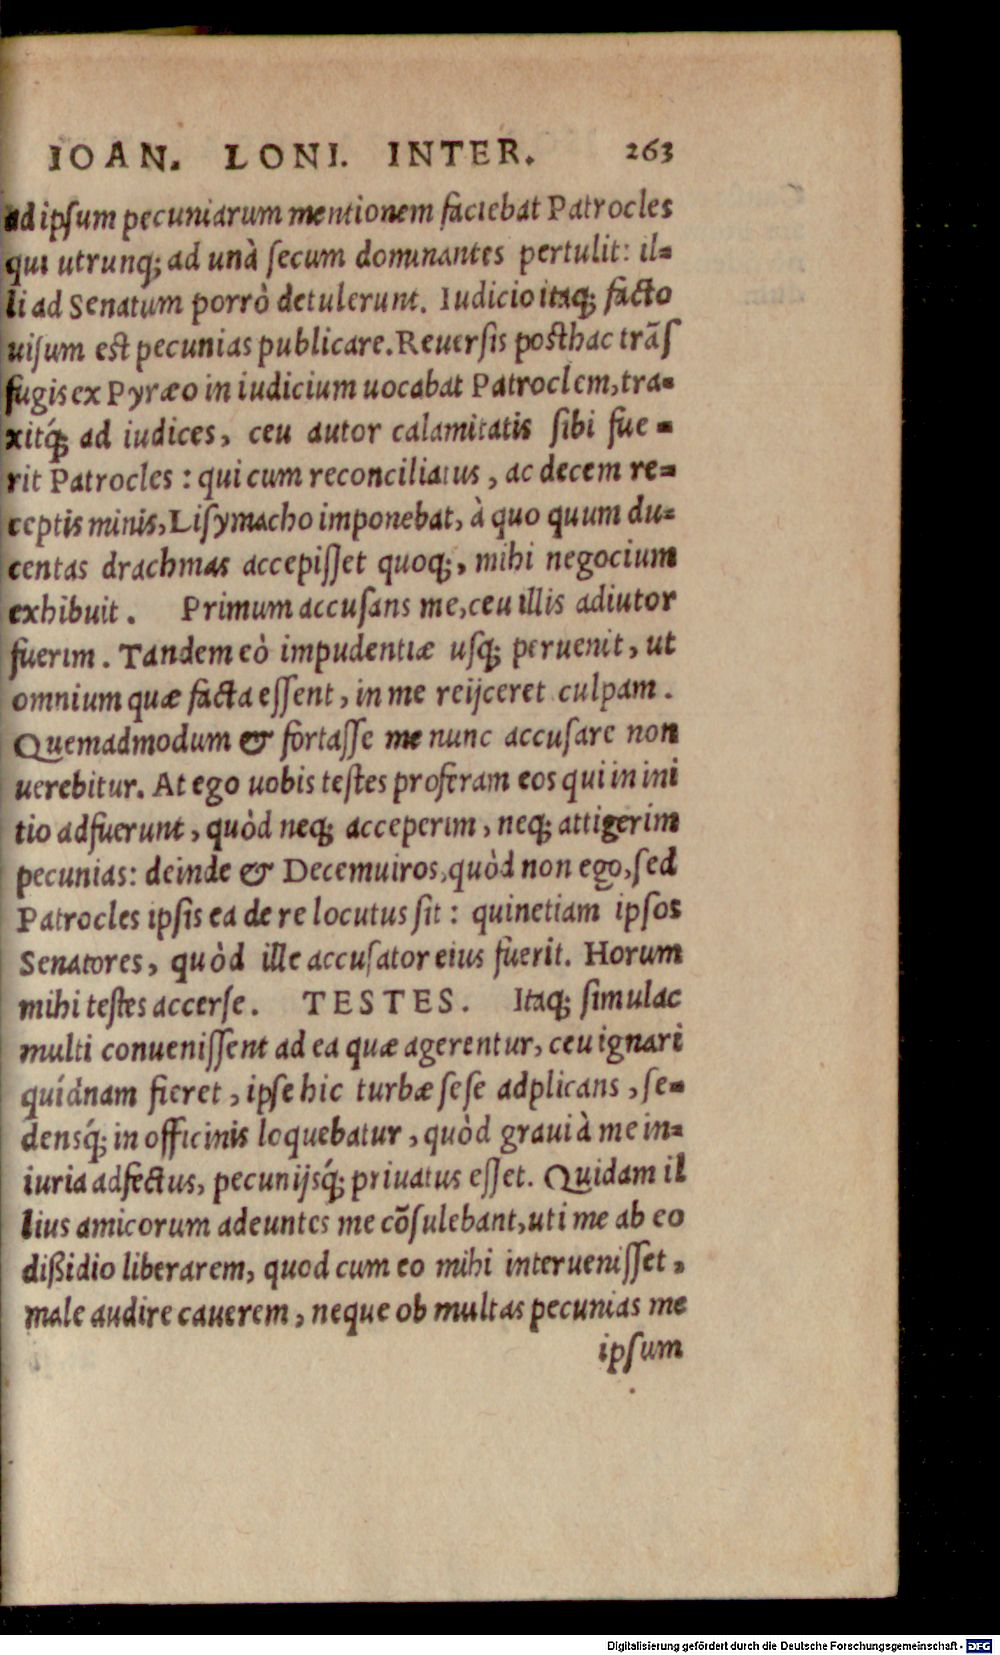 IOAN. LONI. INTER. 263
ad ipſum pecuniarum mentionem faciebat Patrocles
qui utrunq; ad unà ſecum dominantes pertulit: il-
li ad Senatum porrò detulerunt. Iudicio itaq; facto
uiſum eſt pecunias publicare. Reuerſis poſthac trãſ
fugis ex Pyræo in iudicium uocabat Patroclem, tra-
xitq́; ad iudices, ceu autor calamitatis ſibi fue-
rit Patrocles: qui cum reconciliatus, ac decem re-
ceptis minis, Liſymacho imponebat, à quo quum du-
centas drachmas accepiſſet quoq;, mihi negocium
exhibuit. Primum accuſans me, ceu illis adiutor
fuerim. Tandem eò impudentiæ uſq; peruenit, ut
omnium quæ facta eſſent, in me reijceret culpam.
Quemadmodum & fortaſſe me nunc accuſare non
uerebitur. At ego uobis teſtes proferam eos qui in ini
tio adfuerunt, quòd neq; acceperim, neq; attigerim
pecunias: deinde & Decemuiros, quòd non ego, ſed
Patrocles ipſis ea de re locutus ſit: quinetiam ipſos
Senatores, quòd ille accuſator eius fuerit. Horum
mihi teſtes accerſe. TESTES. Itaq; ſimulac
multi conueniſſent ad ea quæ agerentur, ceu ignari
quídnam fieret, ipſe hic turbæ ſeſe adplicans, ſe-
densq́; in officinis loquebatur, quòd graui à me in-
iuria adfectus, pecunijsq́; priuatus eſſet. Quidam il
lius amicorum adeuntes me cõſulebant, uti me ab eo
dißidio liberarem, quod cum eo mihi interueniſſet,
male audire cauerem, neque ob multas pecunias me
ipſum
Digitalisierung gefördert durch die Deutsche Forschungsgemeinschaft - DFG